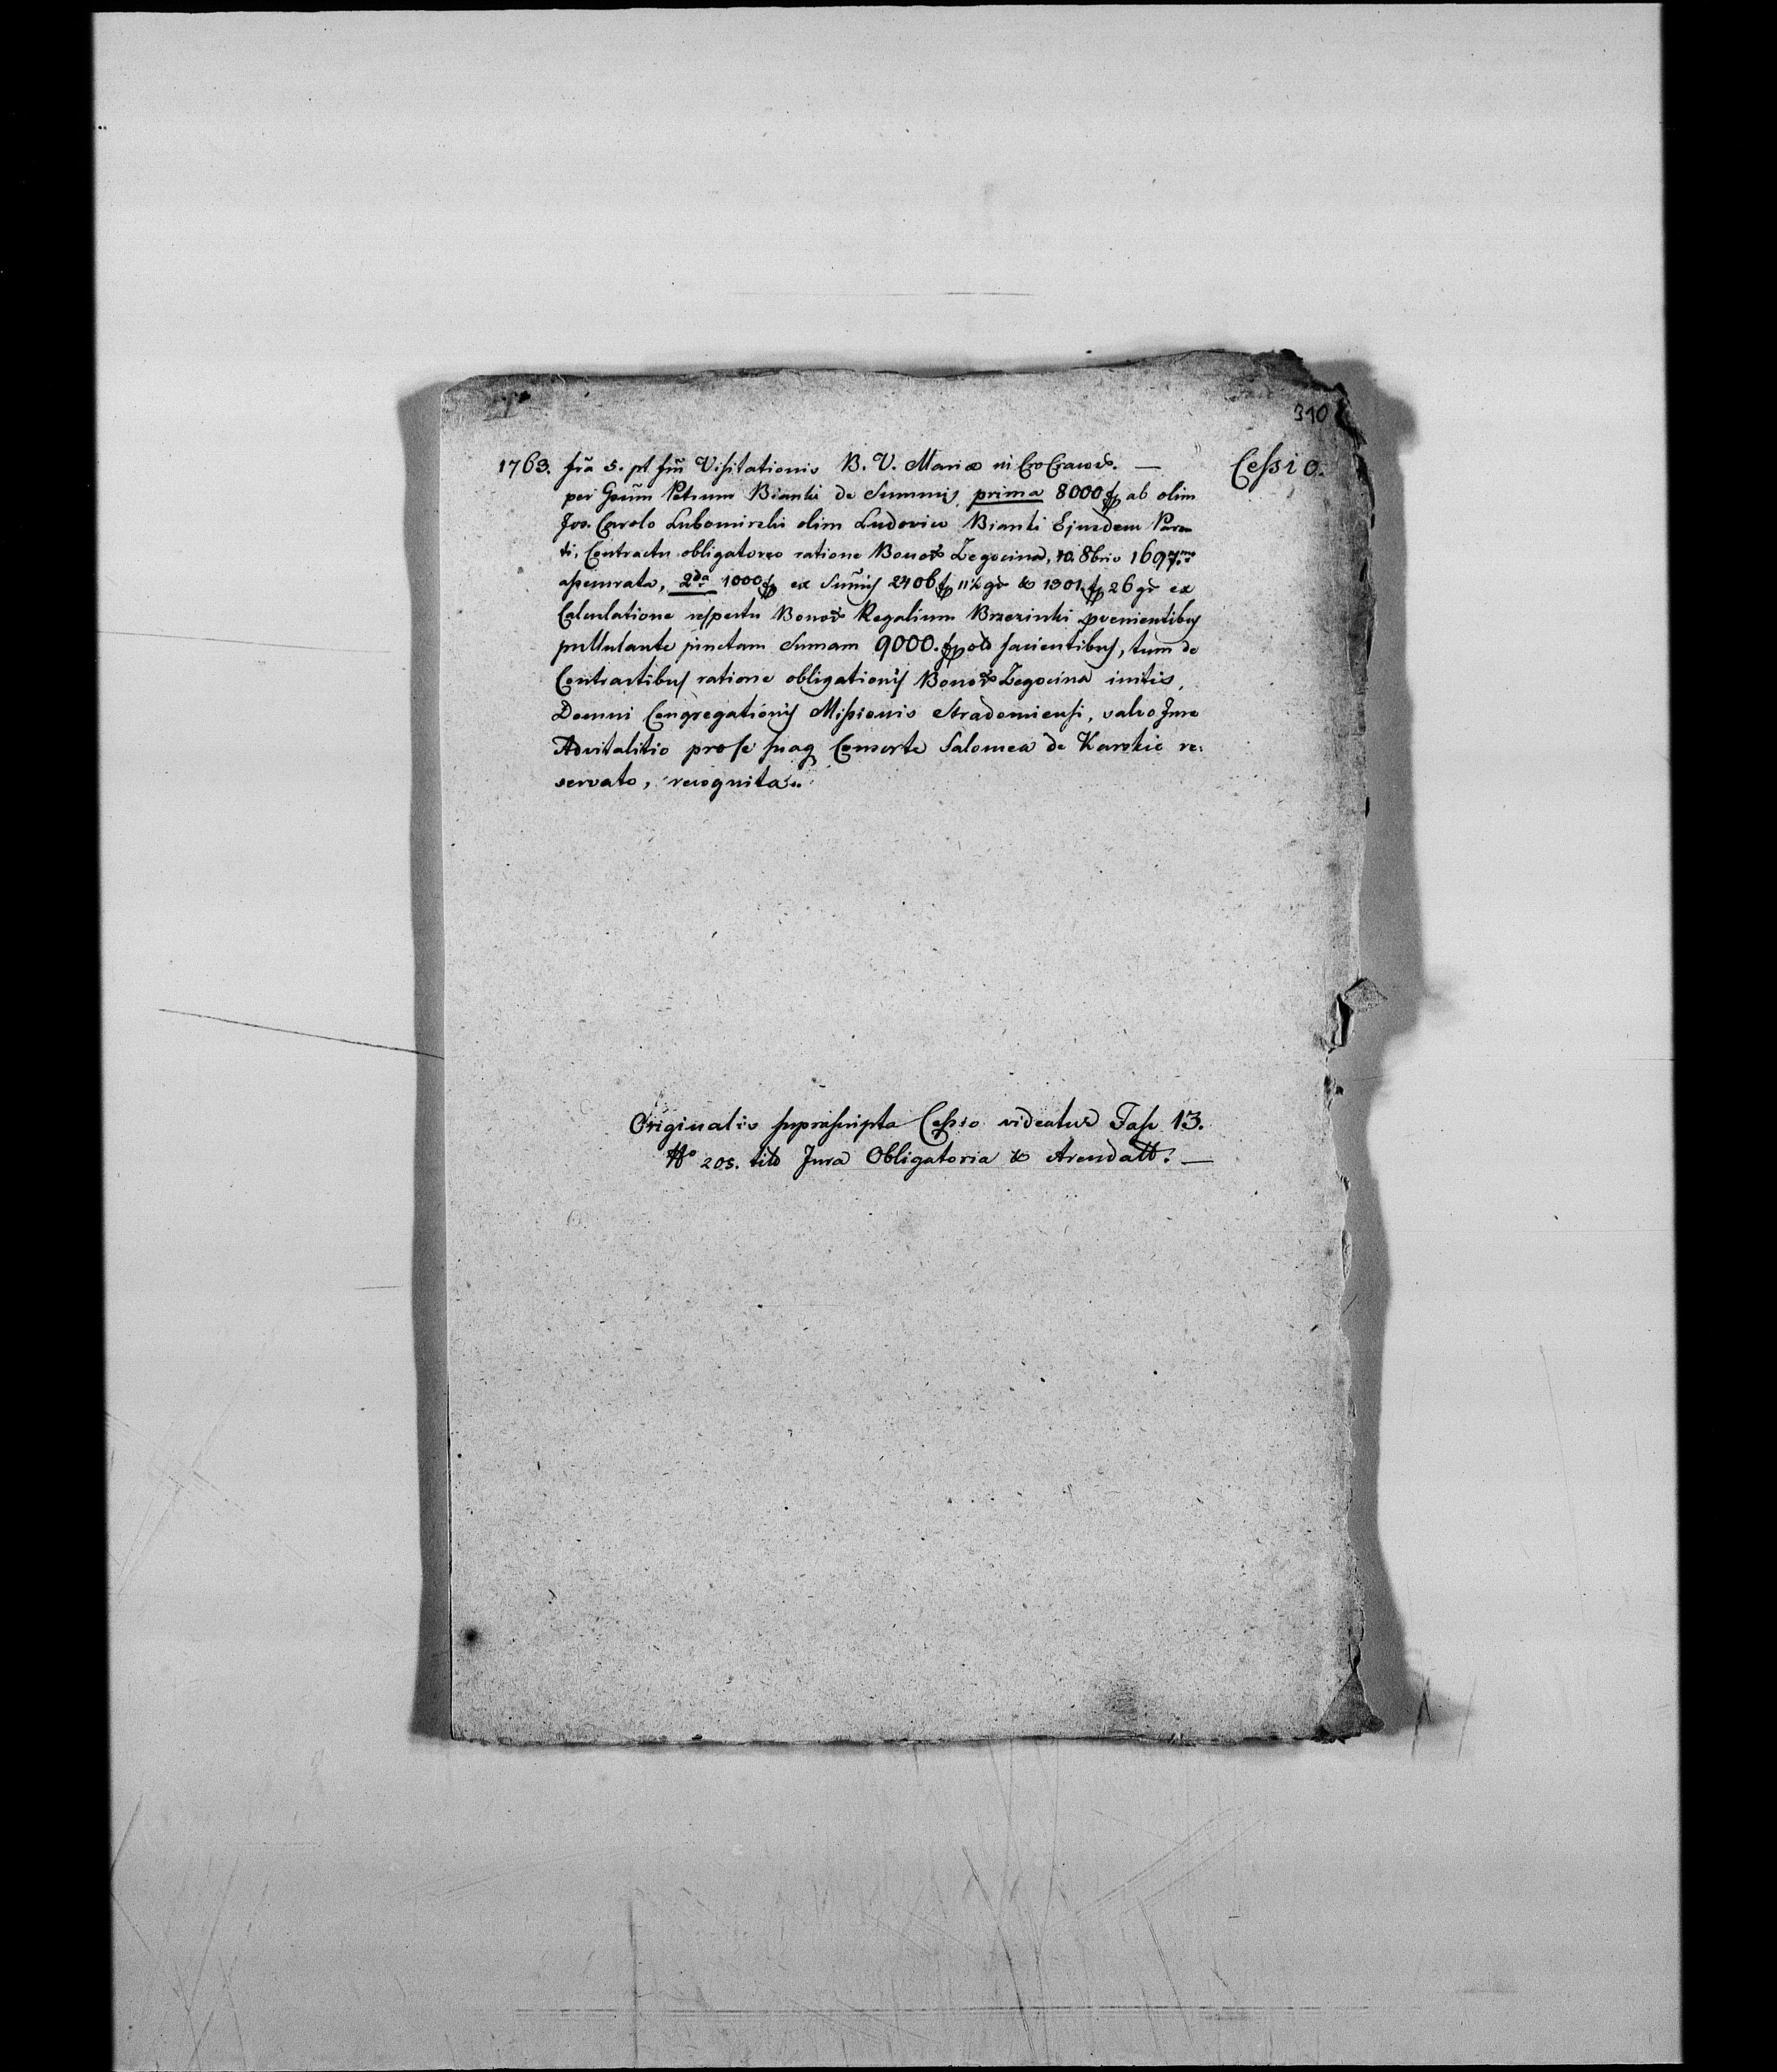 310
1763. fr̃a 5. pt fm̃ Visitationis B. V. Mariæ in Cro Cracov. —
Cessio.
per Gsum Petrum Bianki de Summis, prima 8000 fp ab olim
Jos. Carolo Lubomirski olim Ludovico Bianki Ejusdem Paren
ti, Contractu obligatoreo ratione Bonor Zegocina, 10. 8bris 1697mo
assecurata, 2da 1000 fp ex Sum̃is 2406 fp 11½ gr & 1301 fp 26 gr ex
Calculatione respectu Bonor Regalium Brzezinki pvenientibus
pullulante junctam Sumam 9000. fp facientibus, tum de
Contractibus ratione obligationis Bonor Zegocina initis,
Domui Congregationis Missionis Stradomiensi, salvo Jure
Advitalitio pro se suaq Consorte Salomea de Karskie re:
servato, recognita..
Originalis suprascripta Cessio videatur Fasc 13.
No 205. tito Jura Obligatoria & Arendatt. —